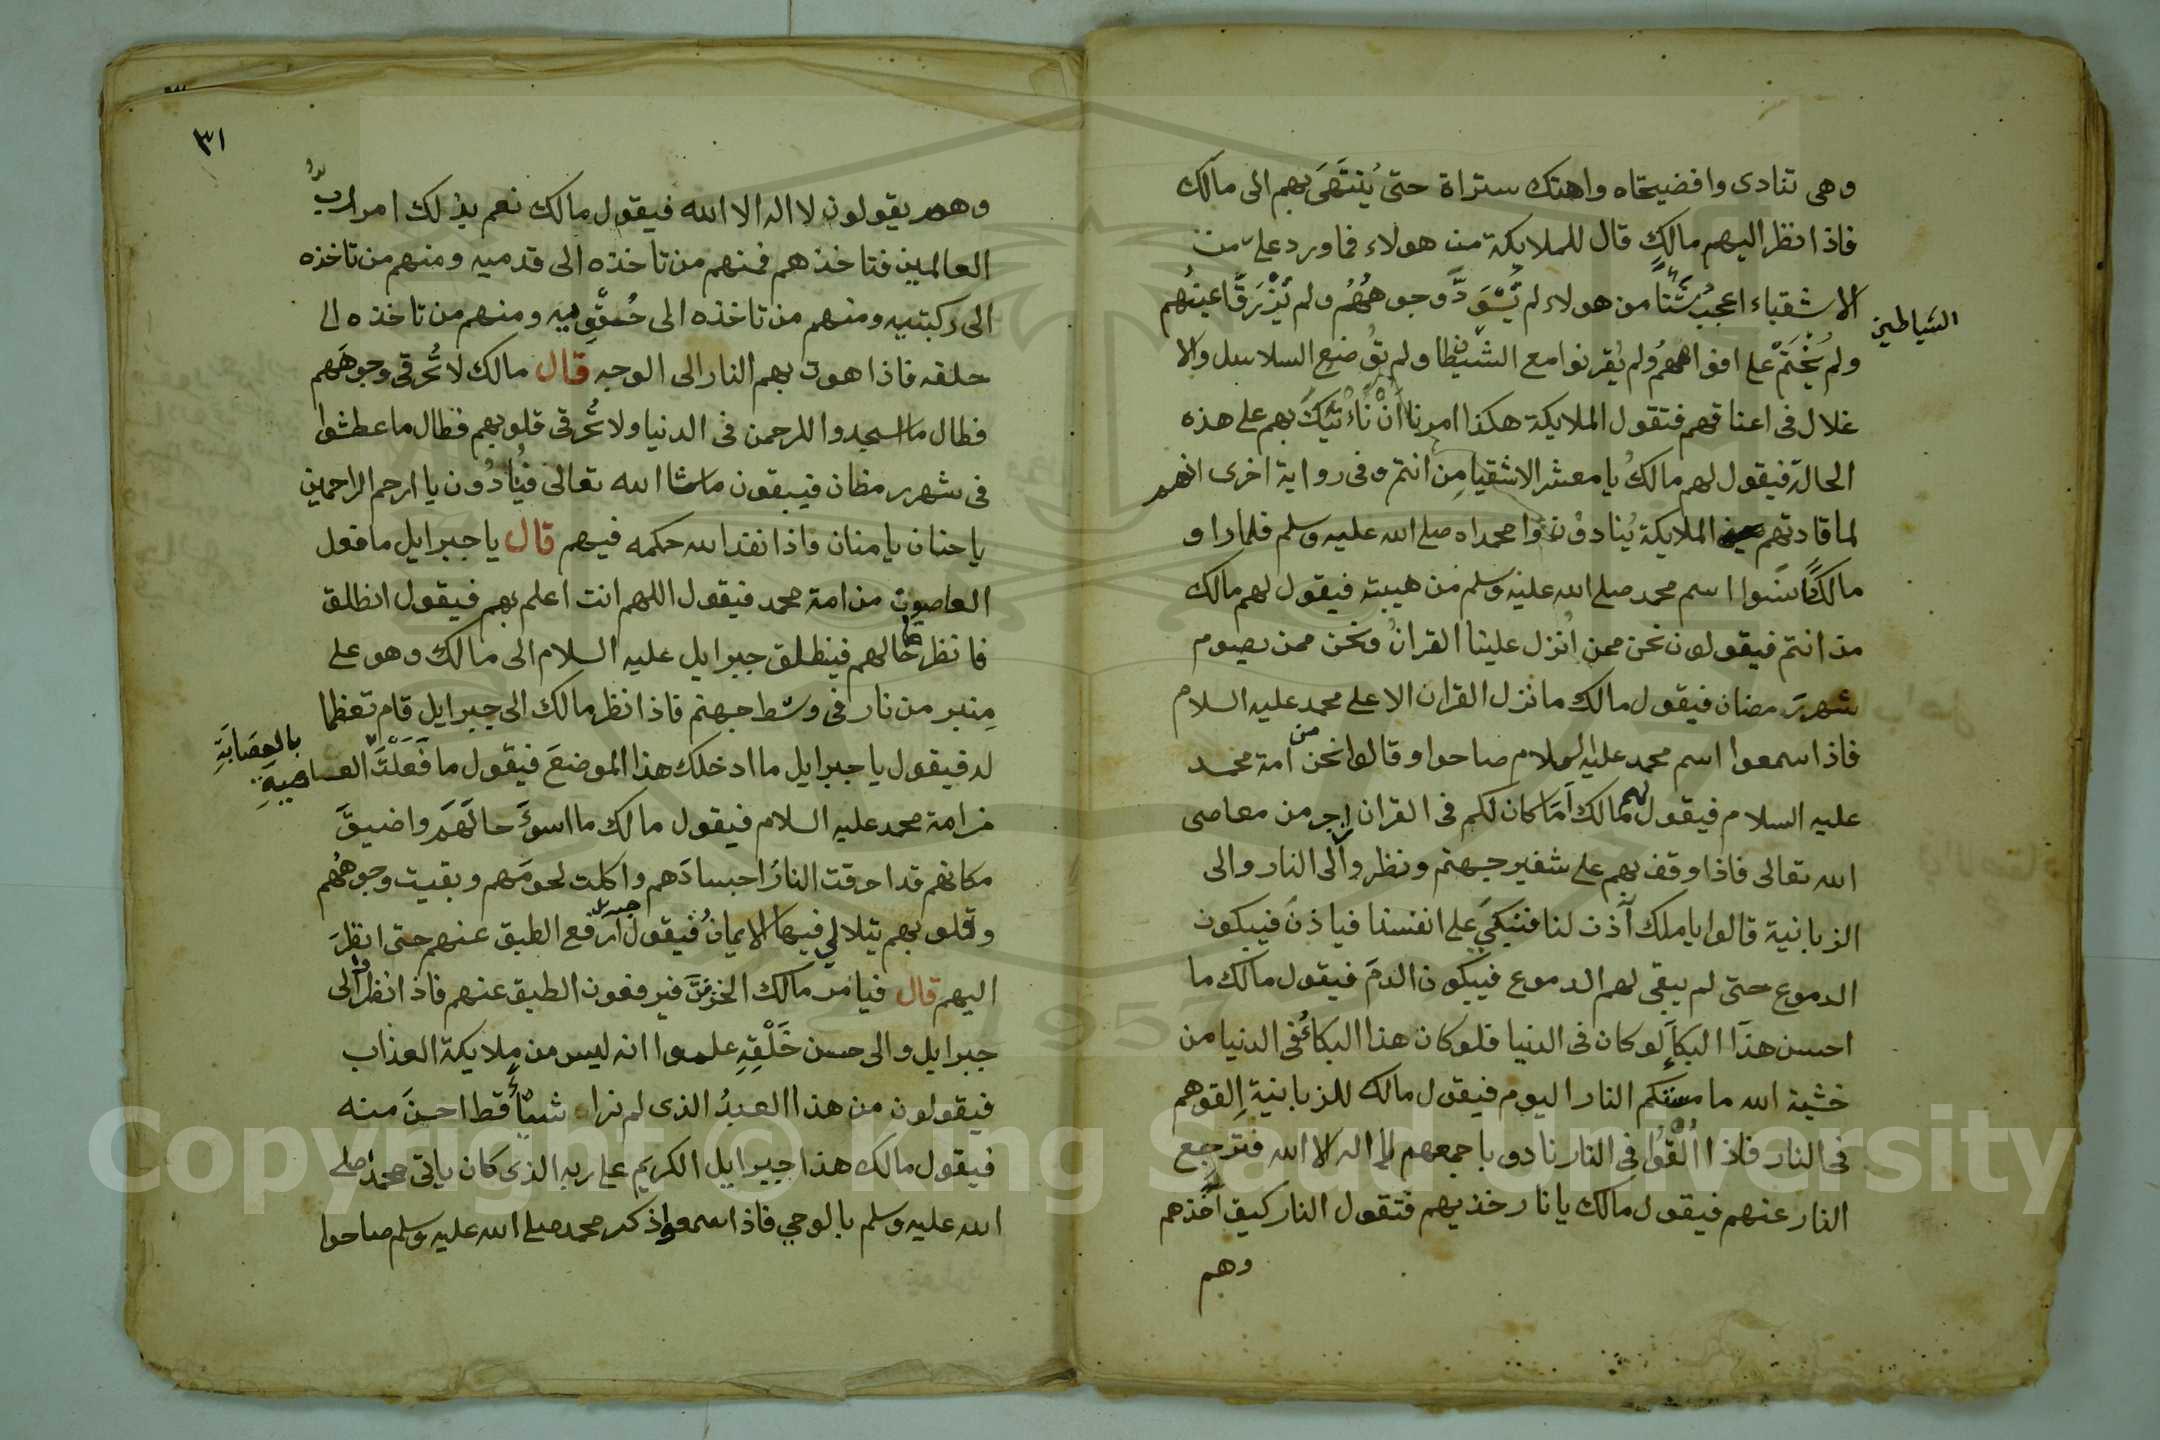 وهى تنادى وافضيحتاه واهتك ستراة حتى يُنتَهَى بهم الى مالك
فاذا نظر اليهم مالك قال للملايكة من هولاء فماورد على من
الاشقياء اعجبُ شئنا من هولاء لم يُسْوَدَّ وجوههُمُ ولم يُزْرَقّ اعينُهم
الشياطين
ولم يُخْتَمْ على افواههمُ ولم يُقرنوا مع الشيطان ولم توُضع السلاسل والا
غلال فى اعناقهم فتقول الملايكة هكذا امرنا انْ نأتيَكَ بهم على هذه
الحالة فيقول لهم مالكُ يا معشر الاشقيا مِن انتم وفى رواية اخرى انهم
لما قادتهم الملايكة يُنادوْن وامحمداه صلى الله عليه وسلم فلما راوا
مالكاً نَسَوا اسم محمد صلى الله عليه وسلم من هيبته فيقول لهم مالك
من انتم فيقولون نحن ممن اُنزل علينا القرانُ ونحن ممن يصوم
شهرَ رمضان فيقول مالك ما نزل القران الا على محمد عليه السلام
فاذا سمعوا اسم محمد عليه السلام صاحوا وقالوا نحن من امة محمد
عليه السلام فيقول لهم مالك اَمَا كان لكم فى القران زاجر من معاصى
الله تعالى فاذا وقف بهم على شفير جهنم ونظروا الى النار والى
الزبانية قالوا يا ملك آذن لنا فنبكىَ على انفسنا فياذن فيبكون
الدموع حتى لم يبقى لهم الدموع فيبكون الدمَ فيقول مالك ما
احسن هذَا البكآء لو كان فى الدنيا فلو كان هذا البكاءُ فى الدنيا من
خشية الله ما مستكم النار اليوم فيقول مالك للزبانية اِلقوهم
فى النار فاذا اُلْقُوْا فى النار نادو باجمعهم لا اله الا الله فترجع
النار عنهم فيقول مالك يا نار خذيهم فتقول النار كيف آخذهم
وهم
٣١
وهم يقولون لا اله الا الله فيقول مالك نعم بذلك امر ربُّ
العالمين فتاخذهم فمنهم من تاخذه الى قدميه ومنهم من تاخذه
الى ركبتيه ومنهم من تاخذه الى حُقْوِيه ومنهم من تاخذه الى
حلقه فاذا هوت بهم النار الى الوجه قال مالك لا تُحرقى وجوهَهم
فطال ما سجدوا للرحمن فى الدنيا ولا تُحرقى قلوبهم فطال ما عطشوا
فى شهر رمظان فيبقون ماشا الله تعالى فيُنادُون يا ارحم الراحمين
يا حنان يا منان فاذا نفد الله حكمه فيهم قال يا جبرايل ما فعل
العاصون من امة محمد فيقول اللهم انت اعلم بهم فيقول انطلق
فانظر ما حالهم فينطلق جبرايل عليه السلام الى مالك وهو على
مِنبر من نار فى وسْط جهنم فاذا نظر مالك الى جبرايل قام تعظما
له فيقول يا جبرايل ما ادخلك هذا الموضعَ فيقول ما فَعَلْتَ العاصيةِ
بالعِصَابَةِ
من امة محمد عليه السلام فيقول مالك ما اسوَءَ حالَهم واضيقَ
مكانهم قد احرقت النارُ اجسادَهم واكلت لحومَهم وبقيت وجوههُم
وقلوبهم يتلالى فيها الايمانُ فيقول جبرايل ارفع الطبق عنهم حتى انظرَ
اليهم قال فيامر مالك الخزنةَ فيرفعون الطبق عنهم فاذا نظروا الى
جبرايل والى حسن خَلْقِهِ علموا انه ليس من ملايكة العذاب
فيقولون من هذا العبدُ الذى لم نراه شيئاً قط احسنَ منه
فيقول مالك هذا جبرايل الكريم على ربه الذى كان ياتى محمدا صلى
الله عليه وسلم بالوحي فاذا سمعوا ذكر محمد صلى الله عليه وسلم صاحوا
1957
Copyright © King Saud University